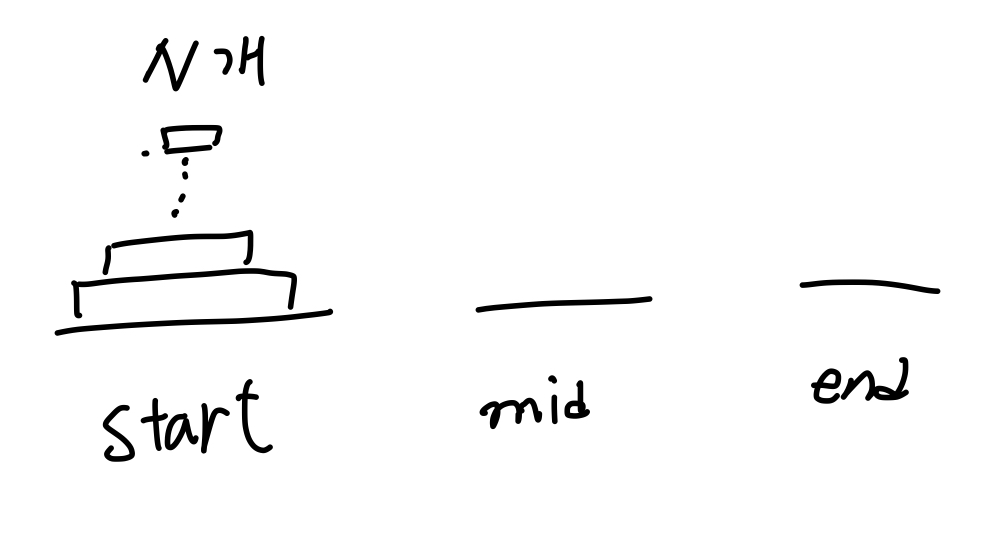 N개
start
mid
end